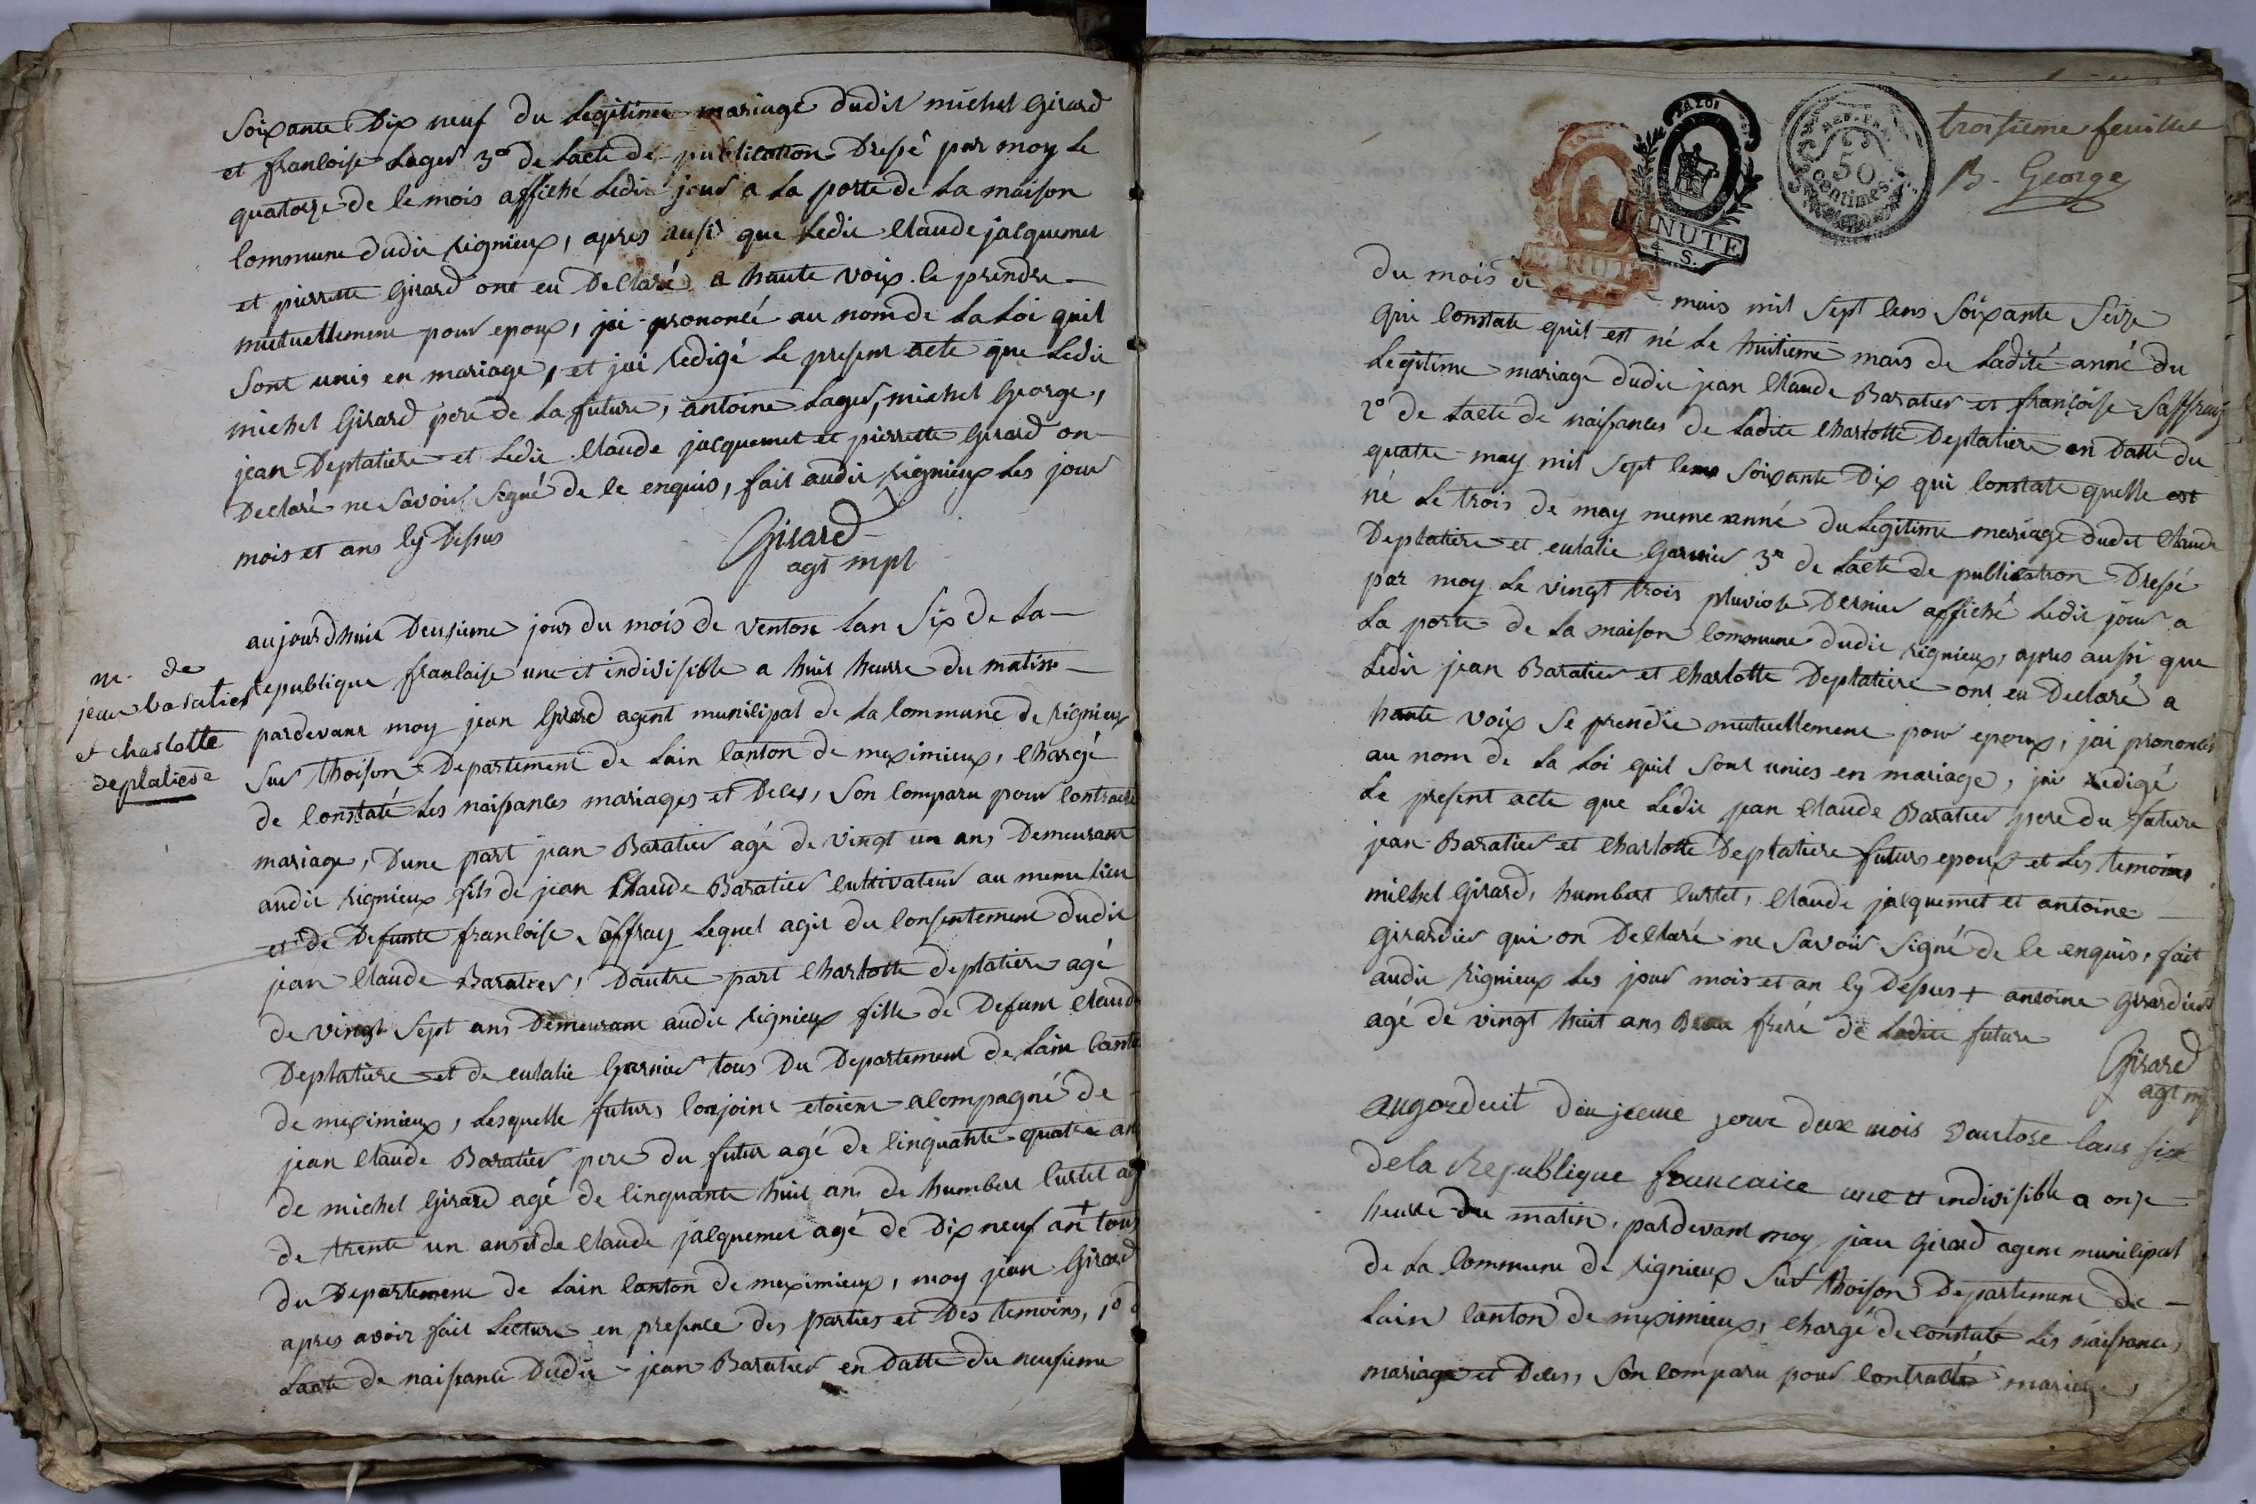 Soixante Dix neuf du Legitime mariage dudit michel Girard
et francoise Lager 3° de Lacte de publication Dressé par moy Le
quatorze de ce mois affiché Ledit jour a La porte de La maison
commune dudit rignieux, apres aussi que Ledit Claude jacquemet
et pierrette Girard ont eu Declaré a haute voix ce prendre
mutuellement pour epoux, jai prononcé au nom de La Loi quil
Sont unis en mariage, et jai redigé Le present acte que Ledit
michel Girard pere de La future, antoine Lager, michel George,
jean Deplatiere et Ledit Claude jacquemet et pierrette Girard on
Declaré ne Savoir Signé de ce enquis, fait audit Rignieux Les jour
mois et ans cy Dessus
Girard
agt mpl
m. de
jean baratier
et charlotte
deplatiere
aujourdhuit Deusieme jour du mois de ventose lan Six de La
republique francaise une et indivisible a huit heure du matin
pardevant moy jean Girard agent municipal de La Commune de rignieux
Sur thoison Departement de Lain Canton de meximieux, Chargé
de Constaté Les naissances mariages et Deces, Son Comparu pour Contracté
mariage, Dune part jean Baratier agé de vingt un ans Demeurant
audit rignieux fils de jean Claude Baratier Cultivateur au meme lieu
et de Defunte francoise Saffray Lequel agit du Consentement dudit
jean Claude Baratier, Dautre part Charlotte deplatiere agé
de vingt Sept ans Demeurant audit rignieux fille de Defunt Claude
Deplatiere et de eulalie Garnier tous Du Departement de Lain Canton
de meximieux, Lesquelle futurs Conjoint etoient acompagné de
jean Claude Baratier pere du futur agé de Cinquante quatre an
de michel Girard agé de Cinquante huit ans de humbert Curtet agé
de trente un ans et de Claude jacquemet agé de Dix neuf an + tous
du Departement de Lain Canton de meximieux, moy jean Girard
apres avoir fait Lecture en presence des parties et Des temoins, 1° de
Lacte de naissance Dudit jean Baratier en Datte du neufieme
troisieme feuillet
B. George
LA LOI
MINUTE
4 S.
MINUTE
REP. FRA.
50
centimes.
du mois de mais mil Sept Cens Soixante Seize
qui Constate quil est né Le huitieme mais de Ladite anné du
Legitime mariage dudit jean Claude Baratier et françoise Saffray
2° de Lacte de naissances de Ladite Charlotte Deplatiere en Datte du
quatre may mil Sept Cens Soixante Dix qui Constate quelle est
né Le trois de may meme anné du Legitime mariage dudet Claude
Deplatiere et eulalie Garnier 3° de Lacte de publication Dressé
par moy Le vingt trois pluviose Dernier affiché Ledit jour a
La porte de La maison Commune dudit rignieux, apres aussi que
Ledit jean Baratier et Charlotte Deplatiere ont eu Declaré a
haute voix Se prendre mutuellement pour epoux, jai prononcé
au nom de La Loi quil Sont unies en mariage, jai redigé
Le present acte que Ledit jean Claude Baratier pere du future
jean Baratier et Charlotte Deplatiere futurs epoux et Les temoins
michel Girard, humbert Curtet, Claude jacquemet et antoine
Girardier qui on Declaré ne Savoir Signé de ce enquis, fait
audit Rignieux Les jour mois et an cy Dessus + antoine Girardier
agé de vingt huit ans Beau freré de Ladite future
Girard
agt mpl
augorduit deujeeme jour dux mois vantose lans six
dela Republique francaice une et indivisible a onze
heure du matin, pardevant moy jean Girard agent municipal
de La Commune de rignieux Sur thoison Departement de
Lain Canton de meximieux, Chargé de Constaté Les naissances
mariage et Deces, Son Comparu pour Contracté mariage,